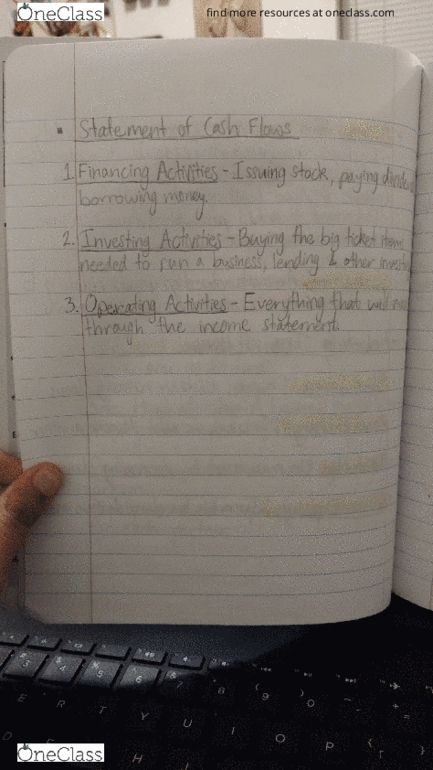 OneClass
find more resources at oneclass.com
▪ Statement of Cash Flows
1. Financing Activities - Issuing stock, paying divide
borrowing money.
2. Investing Activities - Buying the big ticket items
needed to run a business, lending & other invest
3. Operating Activities - Everything that will
through the income statement.
OneClass